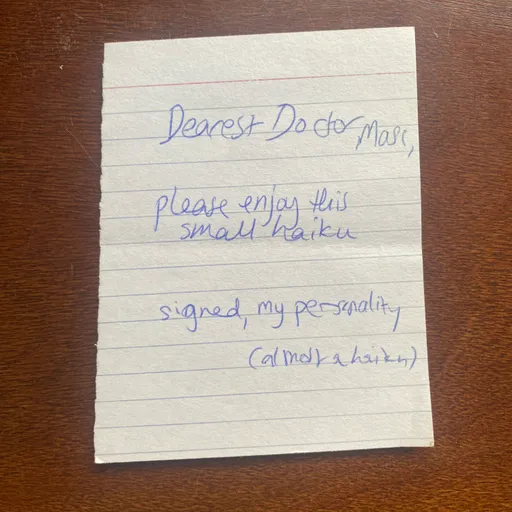 Dearest Doctor Moss,
please enjoy this
small haiku
signed, my personality
(almost a haiku)